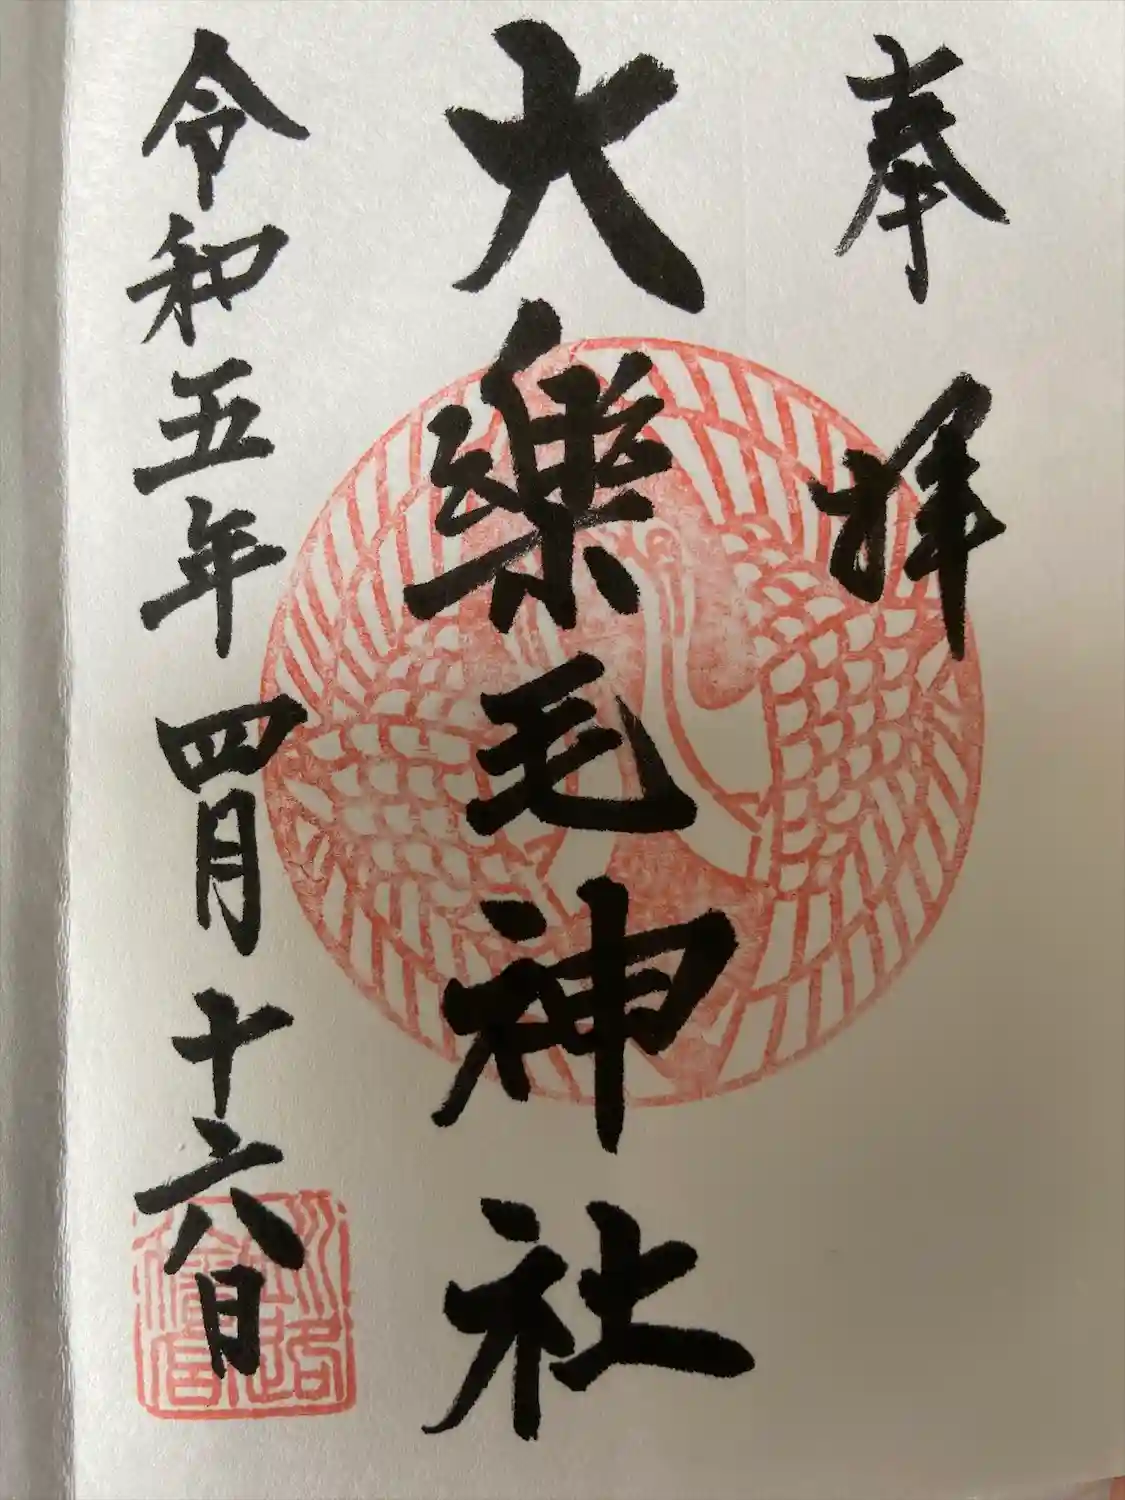 奉拝
大樂毛神社
令和五年四月十六日